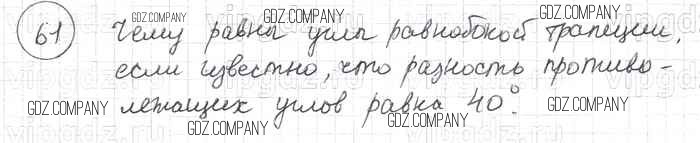 61 Чему равны углы равнобокой трапеции,
если известно, что разность противо-
лежащих углов равна 40°?
GDZ.COMPANY GDZ.COMPANY GDZ.COMPANY GDZ.COMPANY
GDZ.COMPANY GDZ.COMPANY GDZ.COMPANY
GDZ.COMPANY GDZ.COMPANY GDZ.COMPANY